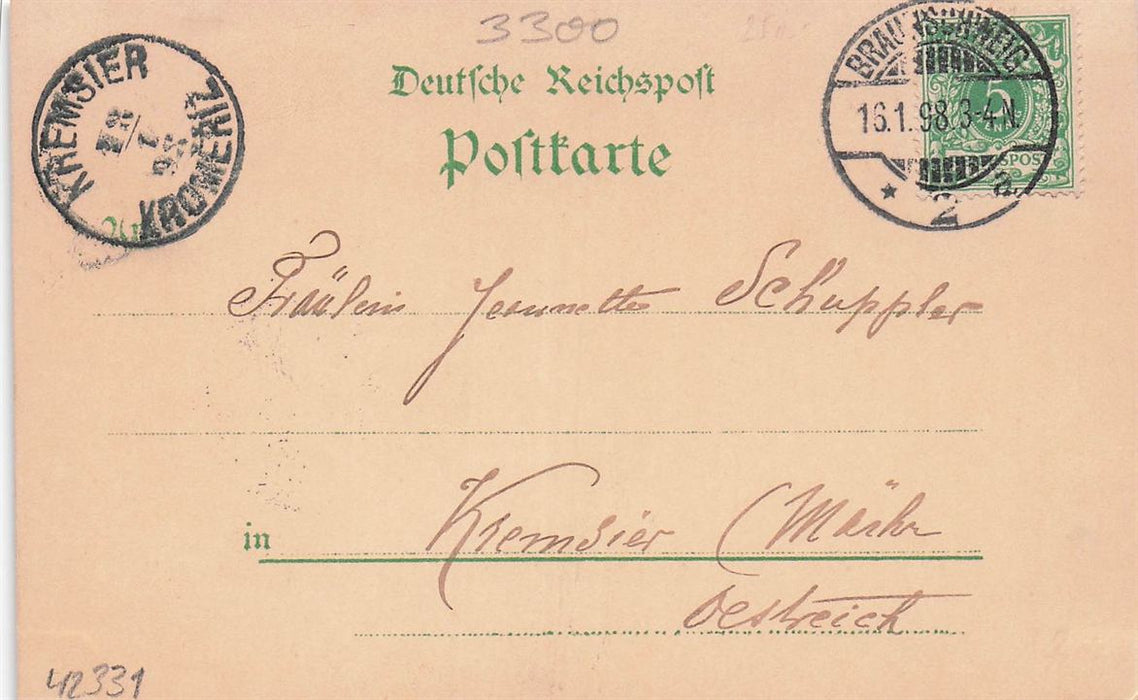 3300
Deutsche Reichspost
Postkarte
KREMSIER
KROMĚŘÍŽ
BRAUNSCHWEIG
16.1.98.3-4N.
* 2 a.
5
An
Fräulein Jeannette Schuppler
in Kremsier (Mähr
Oestreich
42331